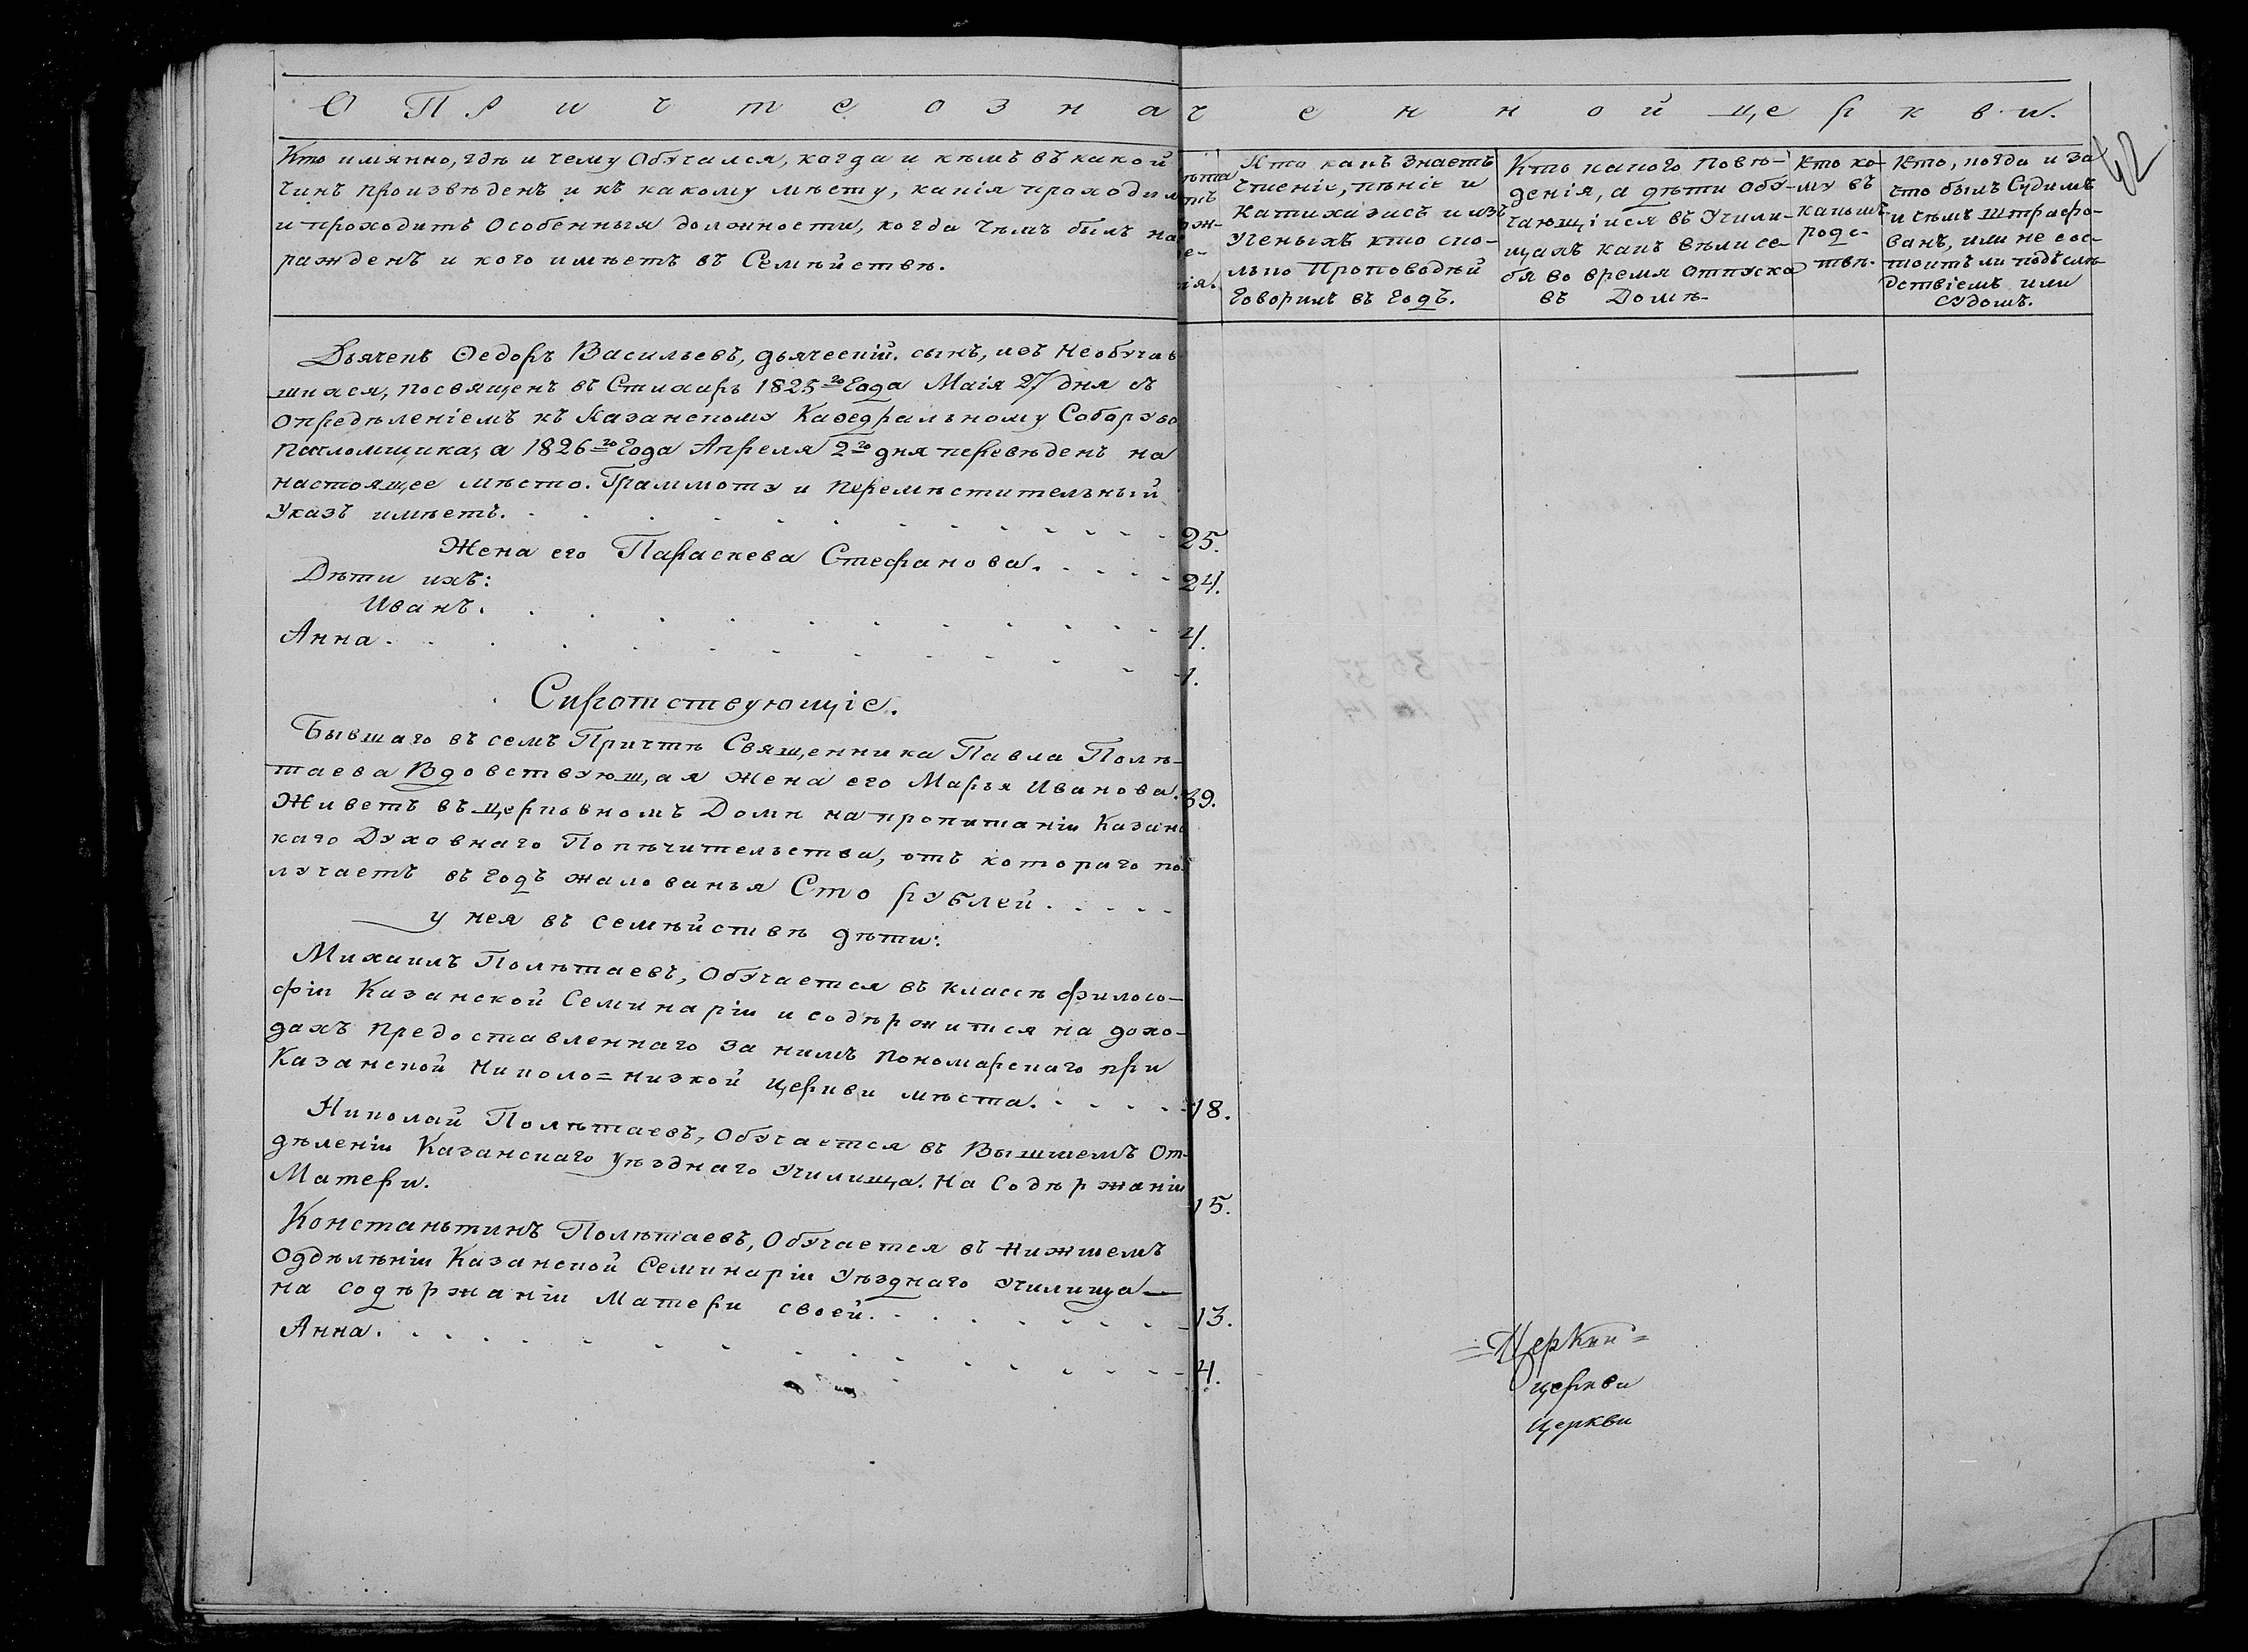 О Причте означенной церкви.
42
Кто имянно, гдѣ и чему Обучался, когда и кѣмъ въ какой
чинъ произвѣденъ и къ какому мѣсту, какія проходилъ
и проходитъ Особенныя должности, когда чѣмъ былъ на
ражденъ и кого имѣетъ въ Семѣйствѣ.
лѣта
рож-
де-
нія.
Кто какъ знаетъ
чтеніе, пѣніе и
Катихизисъ и изъ
Ученыхъ кто ско-
лько Проповодѣй
Говорилъ въ Годъ.
Кто какого Повѣ-
денія, а дѣти обу-
чающіися въ Учили-
щахъ какъ вѣли се-
бя во время отпуска
въ Домѣ
Кто ко-
му въ
какомъ
родс-
твѣ.
Кто, когда и за
что былъ Судимъ
и чѣмъ штрафо-
ванъ, или не сос-
тоитъ ли подъ слѣ-
дствіемъ или
судомъ.
Дьячекъ Ѳедоръ Васильевъ, дьяческій сынъ, изъ Необучав
шихся, посвященъ въ Стихарь 1825го Года Маія 27 дня съ
опредѣленіемъ къ Казанскому Каѳедральному Собору во
Псаломщика, а 1826го Года Апреля 2го дня перевѣденъ на
настоящее мѣсто. Граммоту и перемѣстительный
Указъ имѣетъ. 25.
Жена его Параскева Стефанова. 24.
Дѣти ихъ:
Иванъ. 4.
Анна. 1.
Сиротствующіе.
Бывшаго въ семъ Причтѣ Священника Павла Полѣ-
таева Вдовствующая жена его Марья Иванова. 39.
Живетъ въ церковномъ Домѣ на пропитаніи Казанс
каго Духовнаго Попѣчительства, отъ котораго по
лучаетъ въ годъ жалованья Сто рублей.
у нея въ семѣйствѣ дѣти:
Михаилъ Полѣтаевъ, Обучается въ классѣ филосо-
фіи Казанской Семинаріи и содѣржится на дохо-
дахъ предоставленнаго за нимъ Пономарскаго при
Казанской Николо=низкой церкви мѣста. 18.
Николай Полѣтаевъ, Обучается въ Вышшемъ От-
дѣленіи Казанскаго Уѣзднаго Училища. На Содѣржаніи
Матери. 15.
Константинъ Полѣтаевъ, Обучается въ нижшемъ
Одделѣніи Казанской Семинаріи Уѣзднаго училища
на содѣржаніи Матери своей. 13.
Анна. 4.
=Церкви=
церкви
церкви